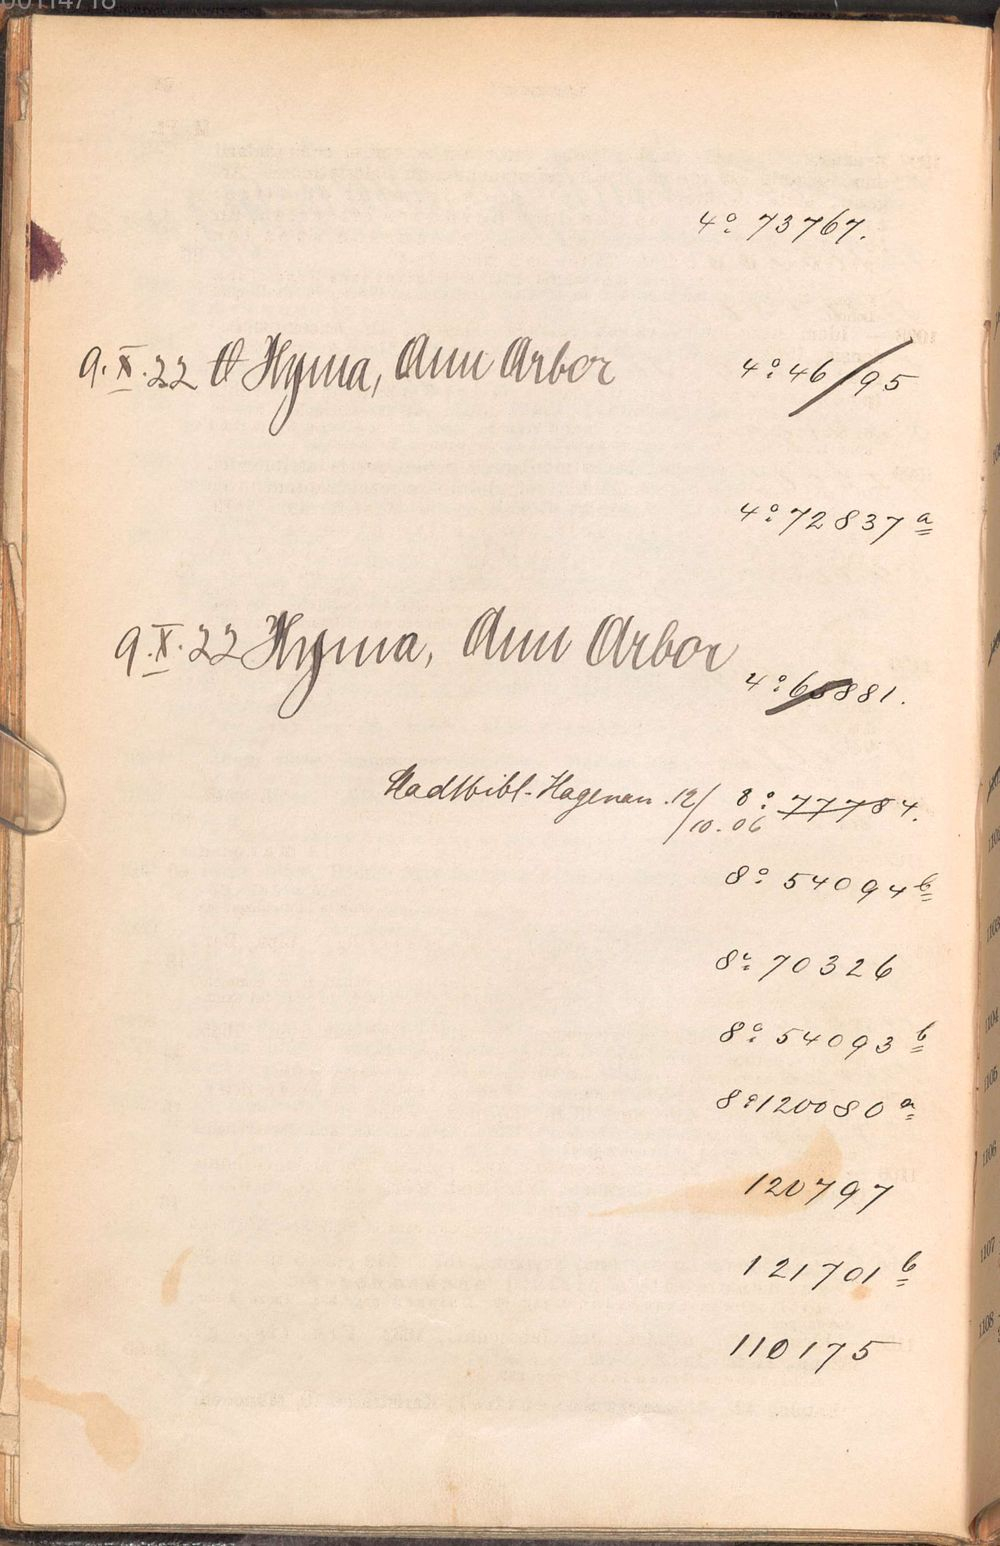 00114718
4º 73767.
9.X.22 A Hyma, Ann Arbor 4º 46/95
4º 72837 a
9.X.22 Hyma, Ann Arbor
4º 65881.
Stadtbibl. Hagenau. 12/10.06 8º 77784.
8º 54094 b
8º 70326
8º 54093 b
8º 120080 a
120797
121701 b
110175
1104
1105
1106
1107
1108